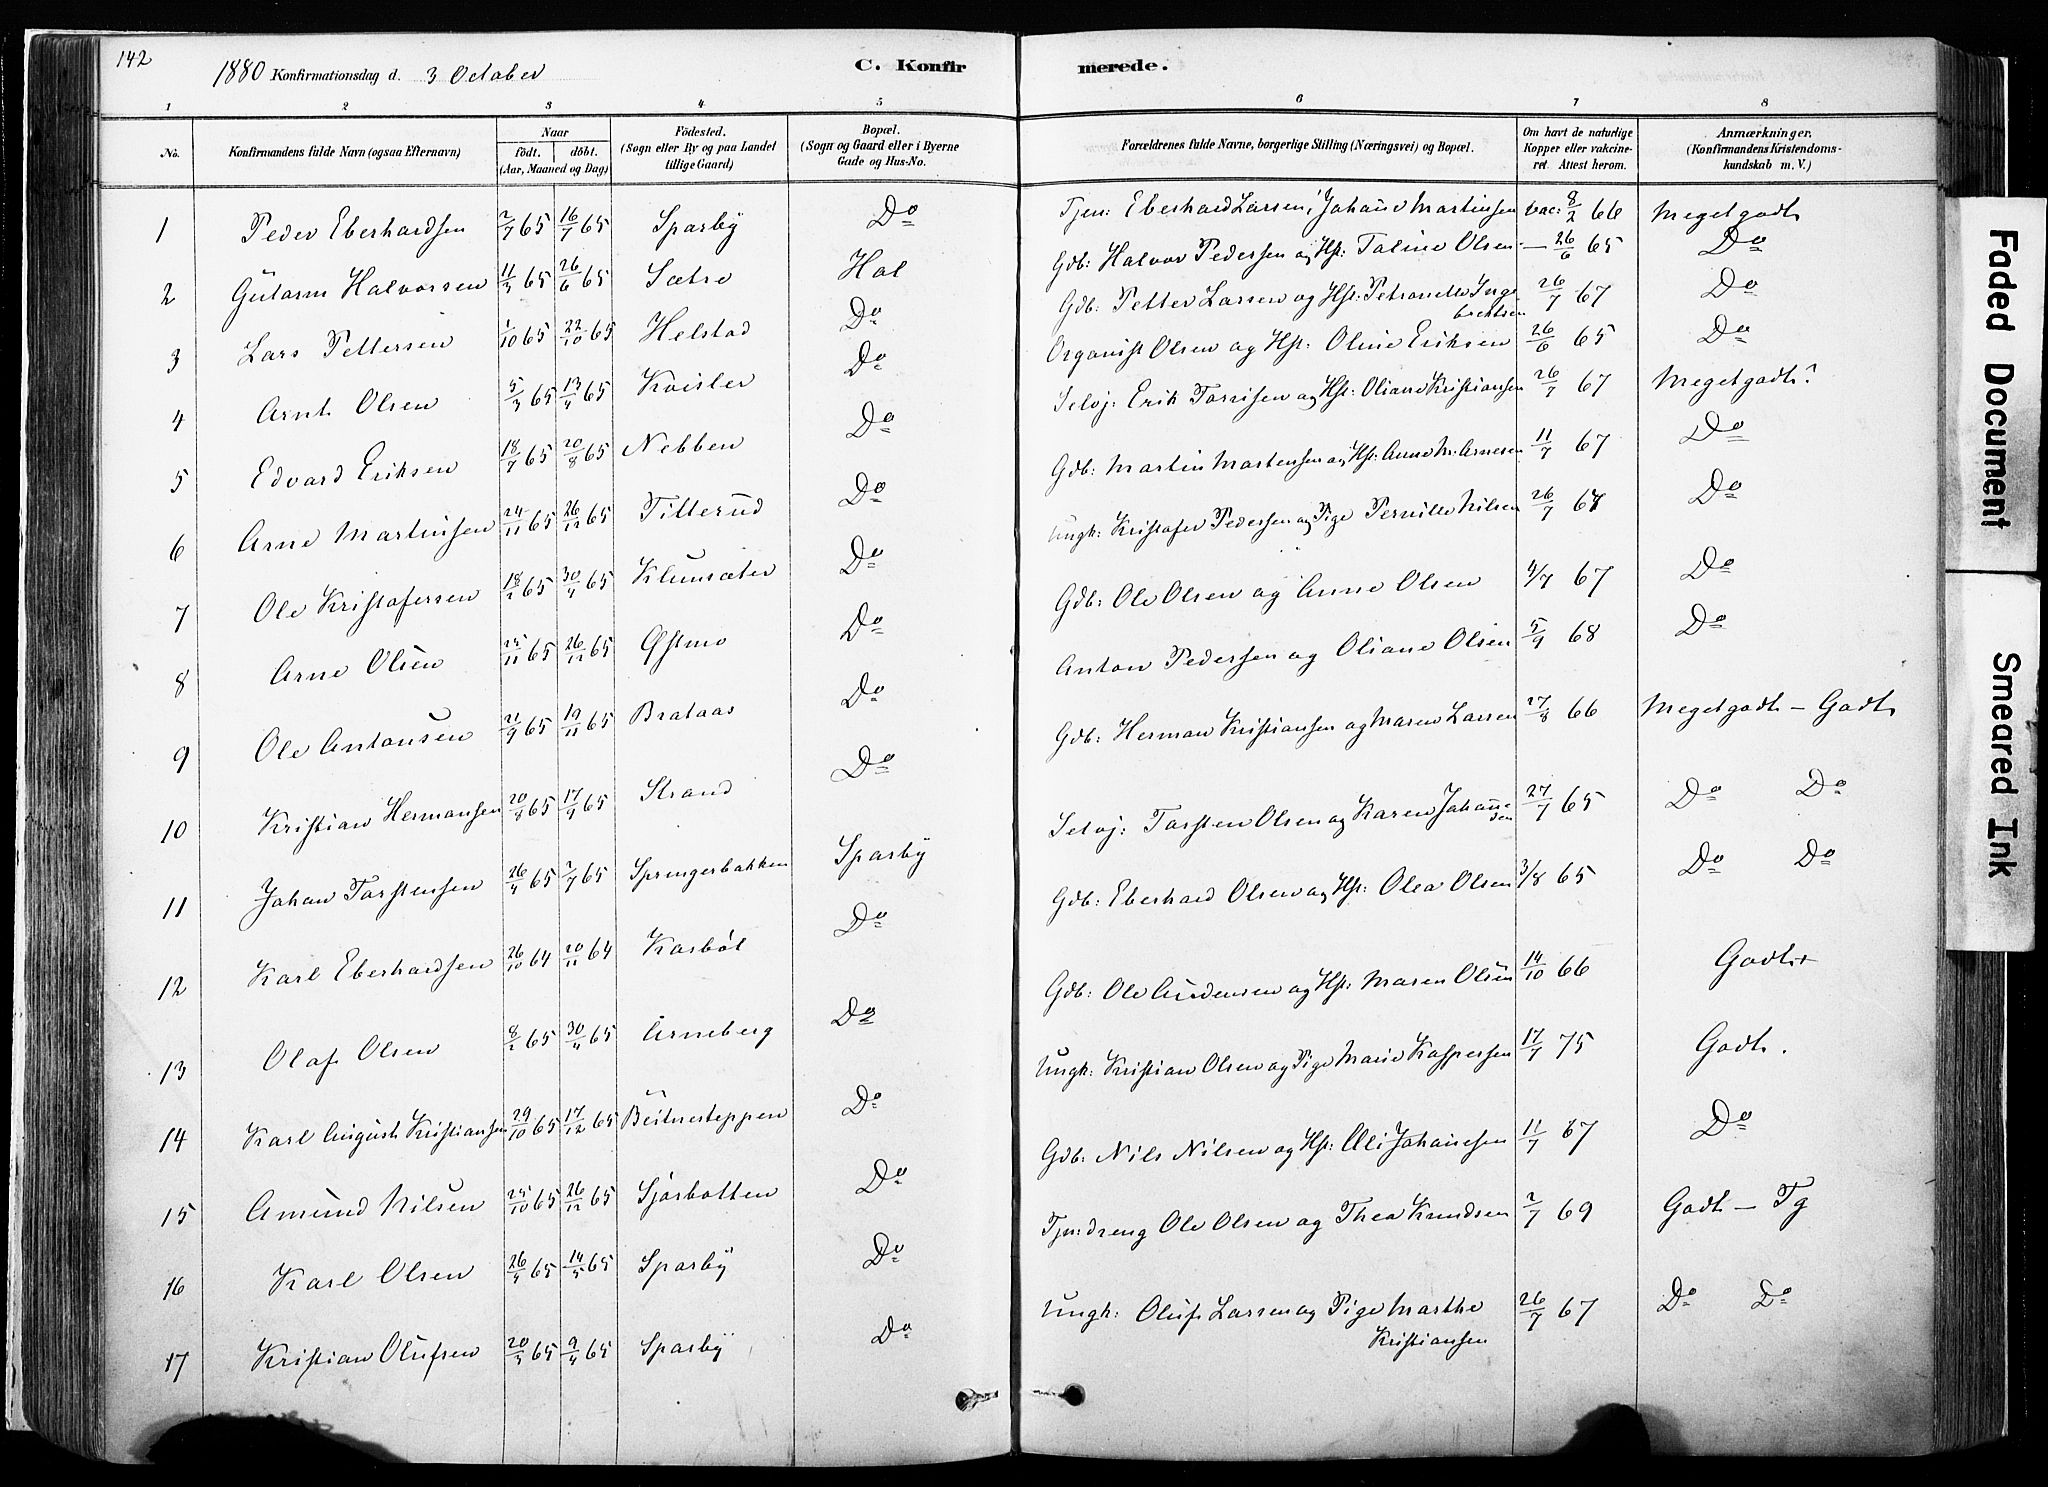 142
1880 Konfirmationsdag d. 3 October
C. Konfir
merede.
1 2 3 4 5 6 7 8
No.
Konfirmandens fulde Navn (ogsaa Efternavn)
Naar
født. døbt.
(Aar, Maaned og Dag)
Födested.
(Sogn eller By og paa Landet
tillige Gaard)
Bopæl.
(Sogn og Gaard eller i Byerne
Gade og Hus-No.
Forældrenes fulde Navne, borgerlige Stilling (Næringsvei) og Bopæl.
Om havt de naturlige
Kopper eller vakcine-
ret. Attest herom.
Anmærkninger.
(Konfirmandens Kristendoms-
kundskab m. V.)
1 Peder Eberhardsen 2/7 65 16/7 65 Sparby Do Tjen: Eberhard Larsen, Johane Martinsen vac: 8/2 66 Megetgodt
2 Gutorm Halvorsen 11/3 65 26/6 65 Sætre Hol Gdb: Halvor Pedersen og Hst: Taline Olsen — 26/6 65 Do
3 Lars Pettersen 1/10 65 22/10 65 Helstad Do Gdb: Petter Larsen og Hst: Petronelle Inge
brektsen 26/7 67 Do
4 Arnt Olsen 5/3 65 13/4 65 Kvisler Do Organist Olsen og Hst: Oline Eriksen 26/6 65 Do
5 Edvard Eriksen 18/7 65 20/8 65 Nebben Do Selvj: Erik Torrisen og Hst: Oliane Kristiansen 26/7 67 Megetgodt?
6 Arne Martinsen 24/11 65 26/12 65 Titterud Do Gdb: Martin Martensen og Hst: Anne M. Arnesen 11/7 67 Do
7 Ole Kristofersen 18/2 65 30/4 65 Klunsæter Do Ungk: Kristofer Pedersen og Pige Pernille Nilsen 26/7 67 Do
8 Arne Olsen 25/11 65 26/12 65 Østmo Do Gdb: Ole Olsen og Anne Olsen 4/7 67 Do
9 Ole Antonsen 21/9 65 19/11 65 Brataas Do Anton Pedersen og Oliane Olsen 5/9 68 Do
10 Kristian Hermansen 20/8 65 17/9 65 Strand Do Gdb: Herman Kristiansen og Maren Larsen 27/8 66 Megetgodt – Godt
11 Johan Torstensen 26/4 65 2/7 65 Springerbakken Sparby Selvj: Torsten Olsen og Karen Johanne-
sen 27/7 65 Do Do
12 Karl Eberhardsen 26/10 64 20/11 64 Karbøl Do Gdb: Eberhard Olsen og Hst: Olea Olsen 3/8 65 Do Do
13 Olaf Olsen 8/2 65 30/4 65 Arneberg Do Gdb: Ole Audensen og Hst: Maren Olsen 14/10 66 Godt+
14 Karl August Kristiansen 29/10 65 17/12 65 Beitnesteppen Do Ungk: Kristian Olsen og Pige Marie Kaspersen 17/7 75 Godt.
15 Amund Nilsen 25/10 65 26/12 65 Sjørbotten Do Gdb: Nils Nilsen og Hst: Eli Johannesen 11/7 67 Do
16 Karl Olsen 26/4 65 14/5 65 Sparby Do Tjn: dreng Ole Olsen og Thea Knudsen 2/7 69 Godt – Tg
17 Kristian Olufsen 20/3 65 9/4 65 Sparby Do Ungk: Oluf Larsen og Pige Marthe
Kristiansen 26/7 67 Do Do
Faded Document
Smeared Ink